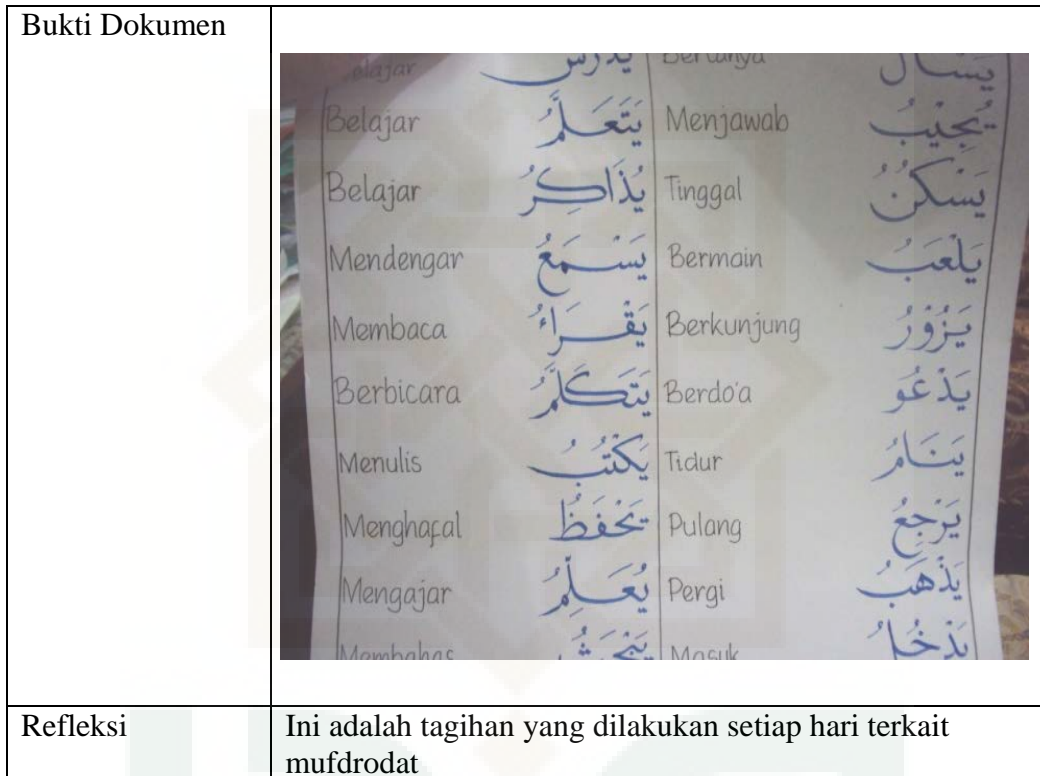 Bukti Dokumen
Belajar يَدْرُسُ Bertanya يَسْأَلُ
Belajar يَتَعَلَّمُ Menjawab يُجِيْبُ
Belajar يُذَاكِرُ Tinggal يَسْكُنُ
Mendengar يَسْمَعُ Bermain يَلْعَبُ
Membaca يَقْرَاءُ Berkunjung يَزُوْرُ
Berbicara يَتَكَلَّمُ Berdo'a يَدْعُو
Menulis يَكْتُبُ Tidur يَنَامُ
Menghafal يَحْفَظُ Pulang يَرْجِعُ
Mengajar يُعَلِّمُ Pergi يَذْهَبُ
Membahas يَبْحَثُ Masuk يَدْخُلُ
Refleksi Ini adalah tagihan yang dilakukan setiap hari terkait
mufdrodat